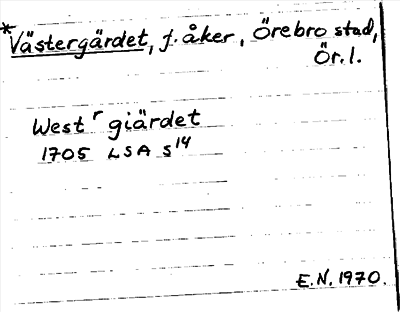 *Västergärdet, f. åker, Örebro stad,
Ör. l.
West r giärdet
1705 LSA S 14
E.N. 1970.